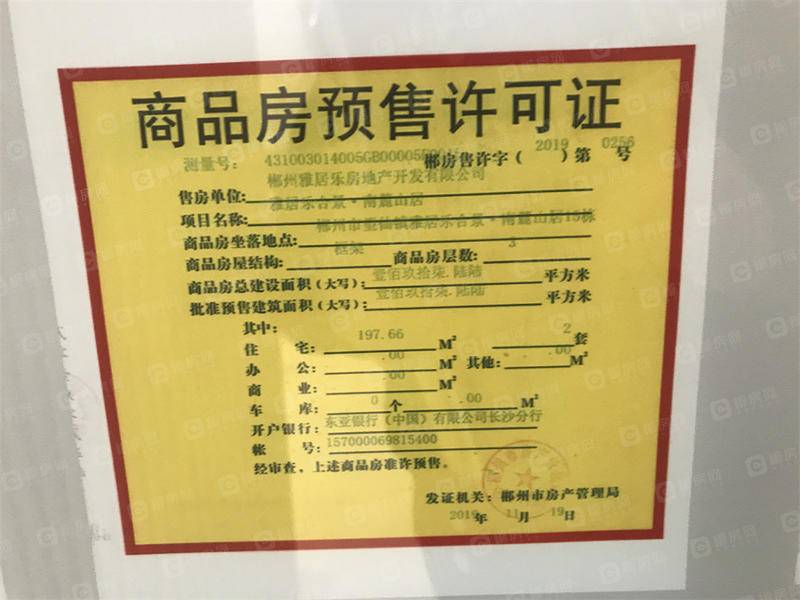 商品房预售许可证
测量号: 431003014005GB00005F0 郴房售许字(2019)第0256号
售房单位: 郴州雅居乐房地产开发有限公司
项目名称: 雅居乐合景·南麓山居
商品房坐落地点: 郴州市 仙镇雅居乐合景·南麓山居15栋
商品房屋结构: 框架 商品房层数: 3
商品房总建设面积(大写): 壹佰玖拾柒.陆陆 平方米
批准预售建筑面积(大写): 壹佰玖拾柒.陆陆 平方米
其中:
住 宅: 197.66 M² 2 套
办 公: .00 M² 其他: .00 M²
商 业: .00 M²
车 库: 0 个 .00 M²
开户银行: 东亚银行(中国)有限公司长沙分行
帐 号: 157000069815400
经审查、上述商品房准许预售。
发证机关: 郴州市房产管理局
2019年11月19日